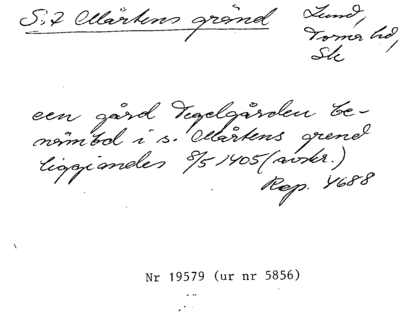 S:t Mårtens gränd
Lund,
Torna hd,
Sk
een gård Tegelgården be-
nämbd i s. Mårtens grend
liggiandes 8/5 1405 (avskr.)
Rep. 4688
Nr 19579 (ur nr 5856)